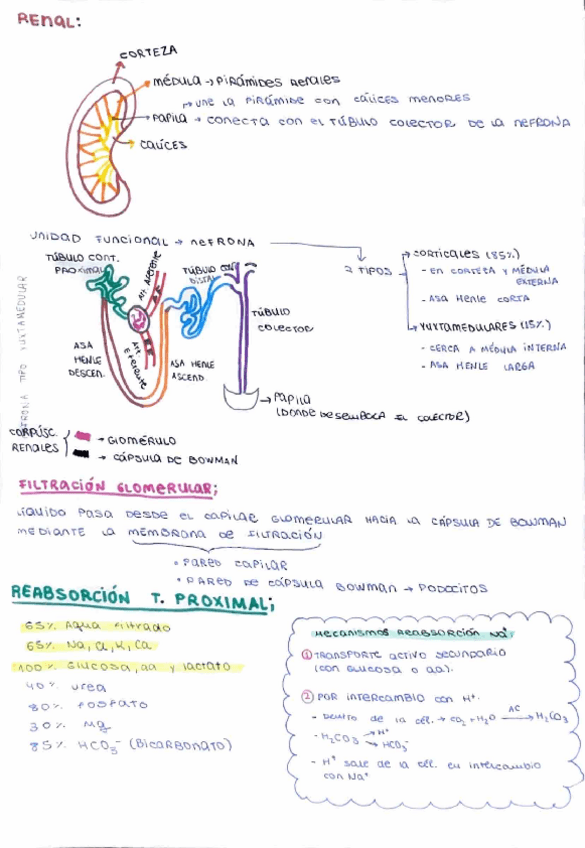 RENAL:
CORTEZA
MÉDULA → PIRÁMIDES RENALES
↳ UNE LA PIRÁMIDE CON CÁLICES MENORES
PAPILA → CONECTA CON EL TÚBULO COLECTOR DE LA NEFRONA
CALICES
UNIDAD FUNCIONAL → NEFRONA
2 TIPOS
CORTICALES (85%)
- EN CORTEZA Y MÉDULA EXTERNA
- ASA HENLE CORTA
YUXTAMEDULARES (15%)
- CERCA A MÉDULA INTERNA
- ASA HENLE LARGA
TÚBULO CONT.
PROXIMAL
Art. Aferente
TÚBULO CONT.
DISTAL
TÚBULO
COLECTOR
ASA
HENLE
DESCEN.
Art. Eferente
ASA HENLE
ASCEND.
→ PAPILA
(DONDE DESEMBOCA EL COLECTOR)
NEFRONA TIPO YUXTAMEDULAR
CORPÚSC.
RENALES
→ GLOMÉRULO
→ CÁPSULA DE BOWMAN
FILTRACIÓN GLOMERULAR;
LÍQUIDO PASA DESDE EL CAPILAR GLOMERULAR HACIA LA CÁPSULA DE BOWMAN
MEDIANTE LA MEMBRANA DE FILTRACIÓN
• PARED CAPILAR
• PARED DE CÁPSULA BOWMAN → PODOCITOS
REABSORCIÓN T. PROXIMAL;
65% Agua filtrado
65% Na, Cl, K, Ca
100% Glucosa, aa y lactato
40% urea
80% fosfato
30% Mg
85% HCO3⁻ (Bicarbonato)
MECANISMOS REABSORCIÓN Na⁺:
① TRANSPORTE ACTIVO SECUNDARIO
(CON GLUCOSA O aa).
② POR INTERCAMBIO CON H⁺.
- DENTRO DE LA CÉL. → CO2 + H2O —AC→ H2CO3
- H2CO3 → H⁺
→ HCO3⁻
- H⁺ SALE DE LA CÉL. EN INTERCAMBIO
CON Na⁺